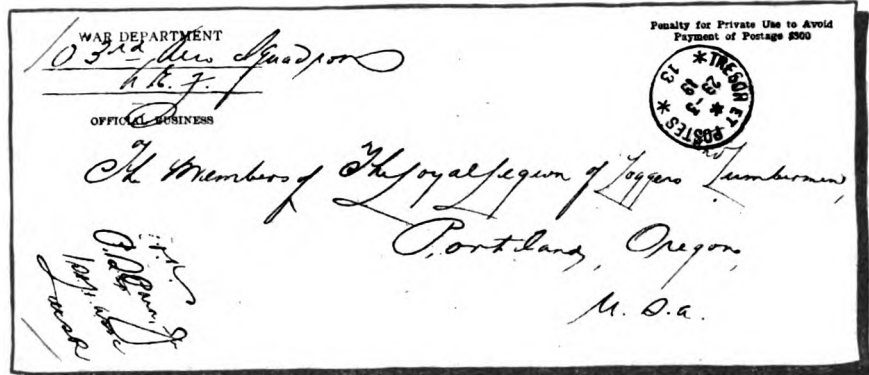 WAR DEPARTMENT
103rd Aero Squadron
A.E.F.
OFFICIAL BUSINESS
Penalty for Private Use to Avoid
Payment of Postage $300
* TRESOR ET POSTES *
13
The Members of The Loyal Legion of Loggers and Lumbermen,
Portland, Oregon,
U.S.A.